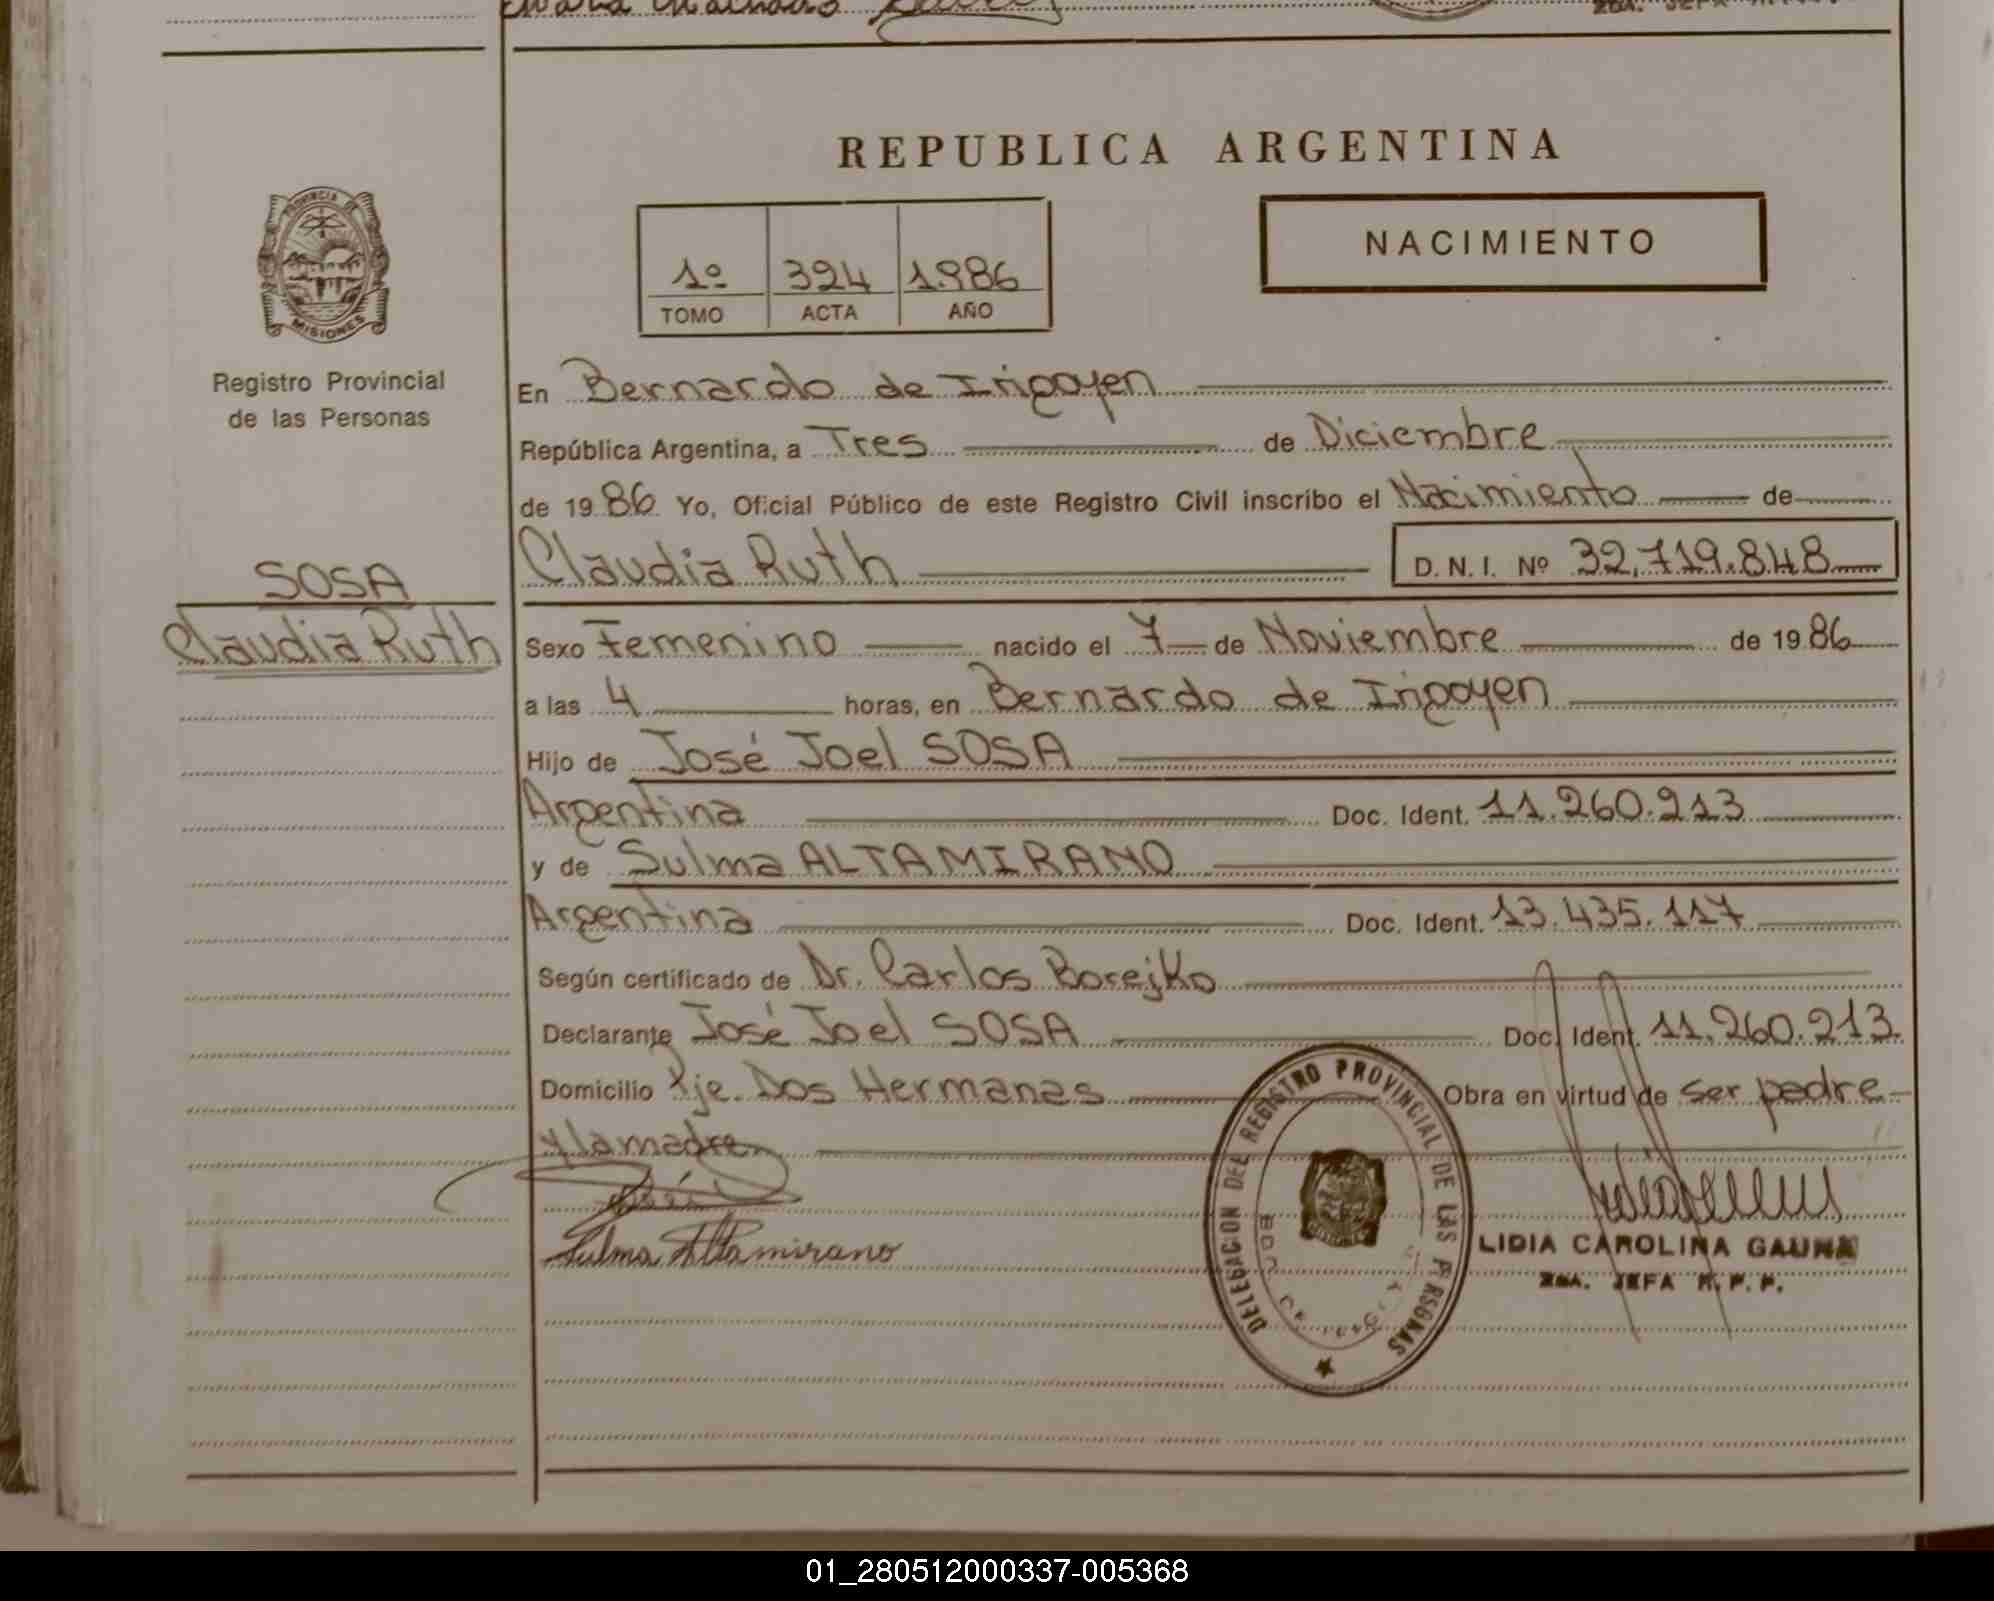 REPUBLICA ARGENTINA
PROVINCIA DE
MISIONES
Registro Provincial
de las Personas
1º 324 1.986
TOMO ACTA AÑO
NACIMIENTO
En Bernardo de Irigoyen
República Argentina, a Tres de Diciembre
de 1986 Yo, Oficial Público de este Registro Civil inscribo el Nacimiento de
Claudia Ruth D. N. I. Nº 32.719.848
SOSA
Claudia Ruth
Sexo Femenino nacido el 7 de Noviembre de 1986
a las 4 horas, en Bernardo de Irigoyen
Hijo de José Joel SOSA
Argentina Doc. Ident. 11.260.213
y de Sulma ALTAMIRANO
Argentina Doc. Ident. 13.435.117
Según certificado de Dr. Carlos Borejko
Declarante José Joel SOSA Doc. Ident. 11.260.213.
Domicilio Pje. Dos Hermanas Obra en virtud de ser padre
y la madre
Sulma Altamirano
DELEGACION DEL REGISTRO PROVINCIAL DE LAS PERSONAS
LIDIA CAROLINA GAUNA
2DA. JEFA R. P. P.
01_280512000337-005368